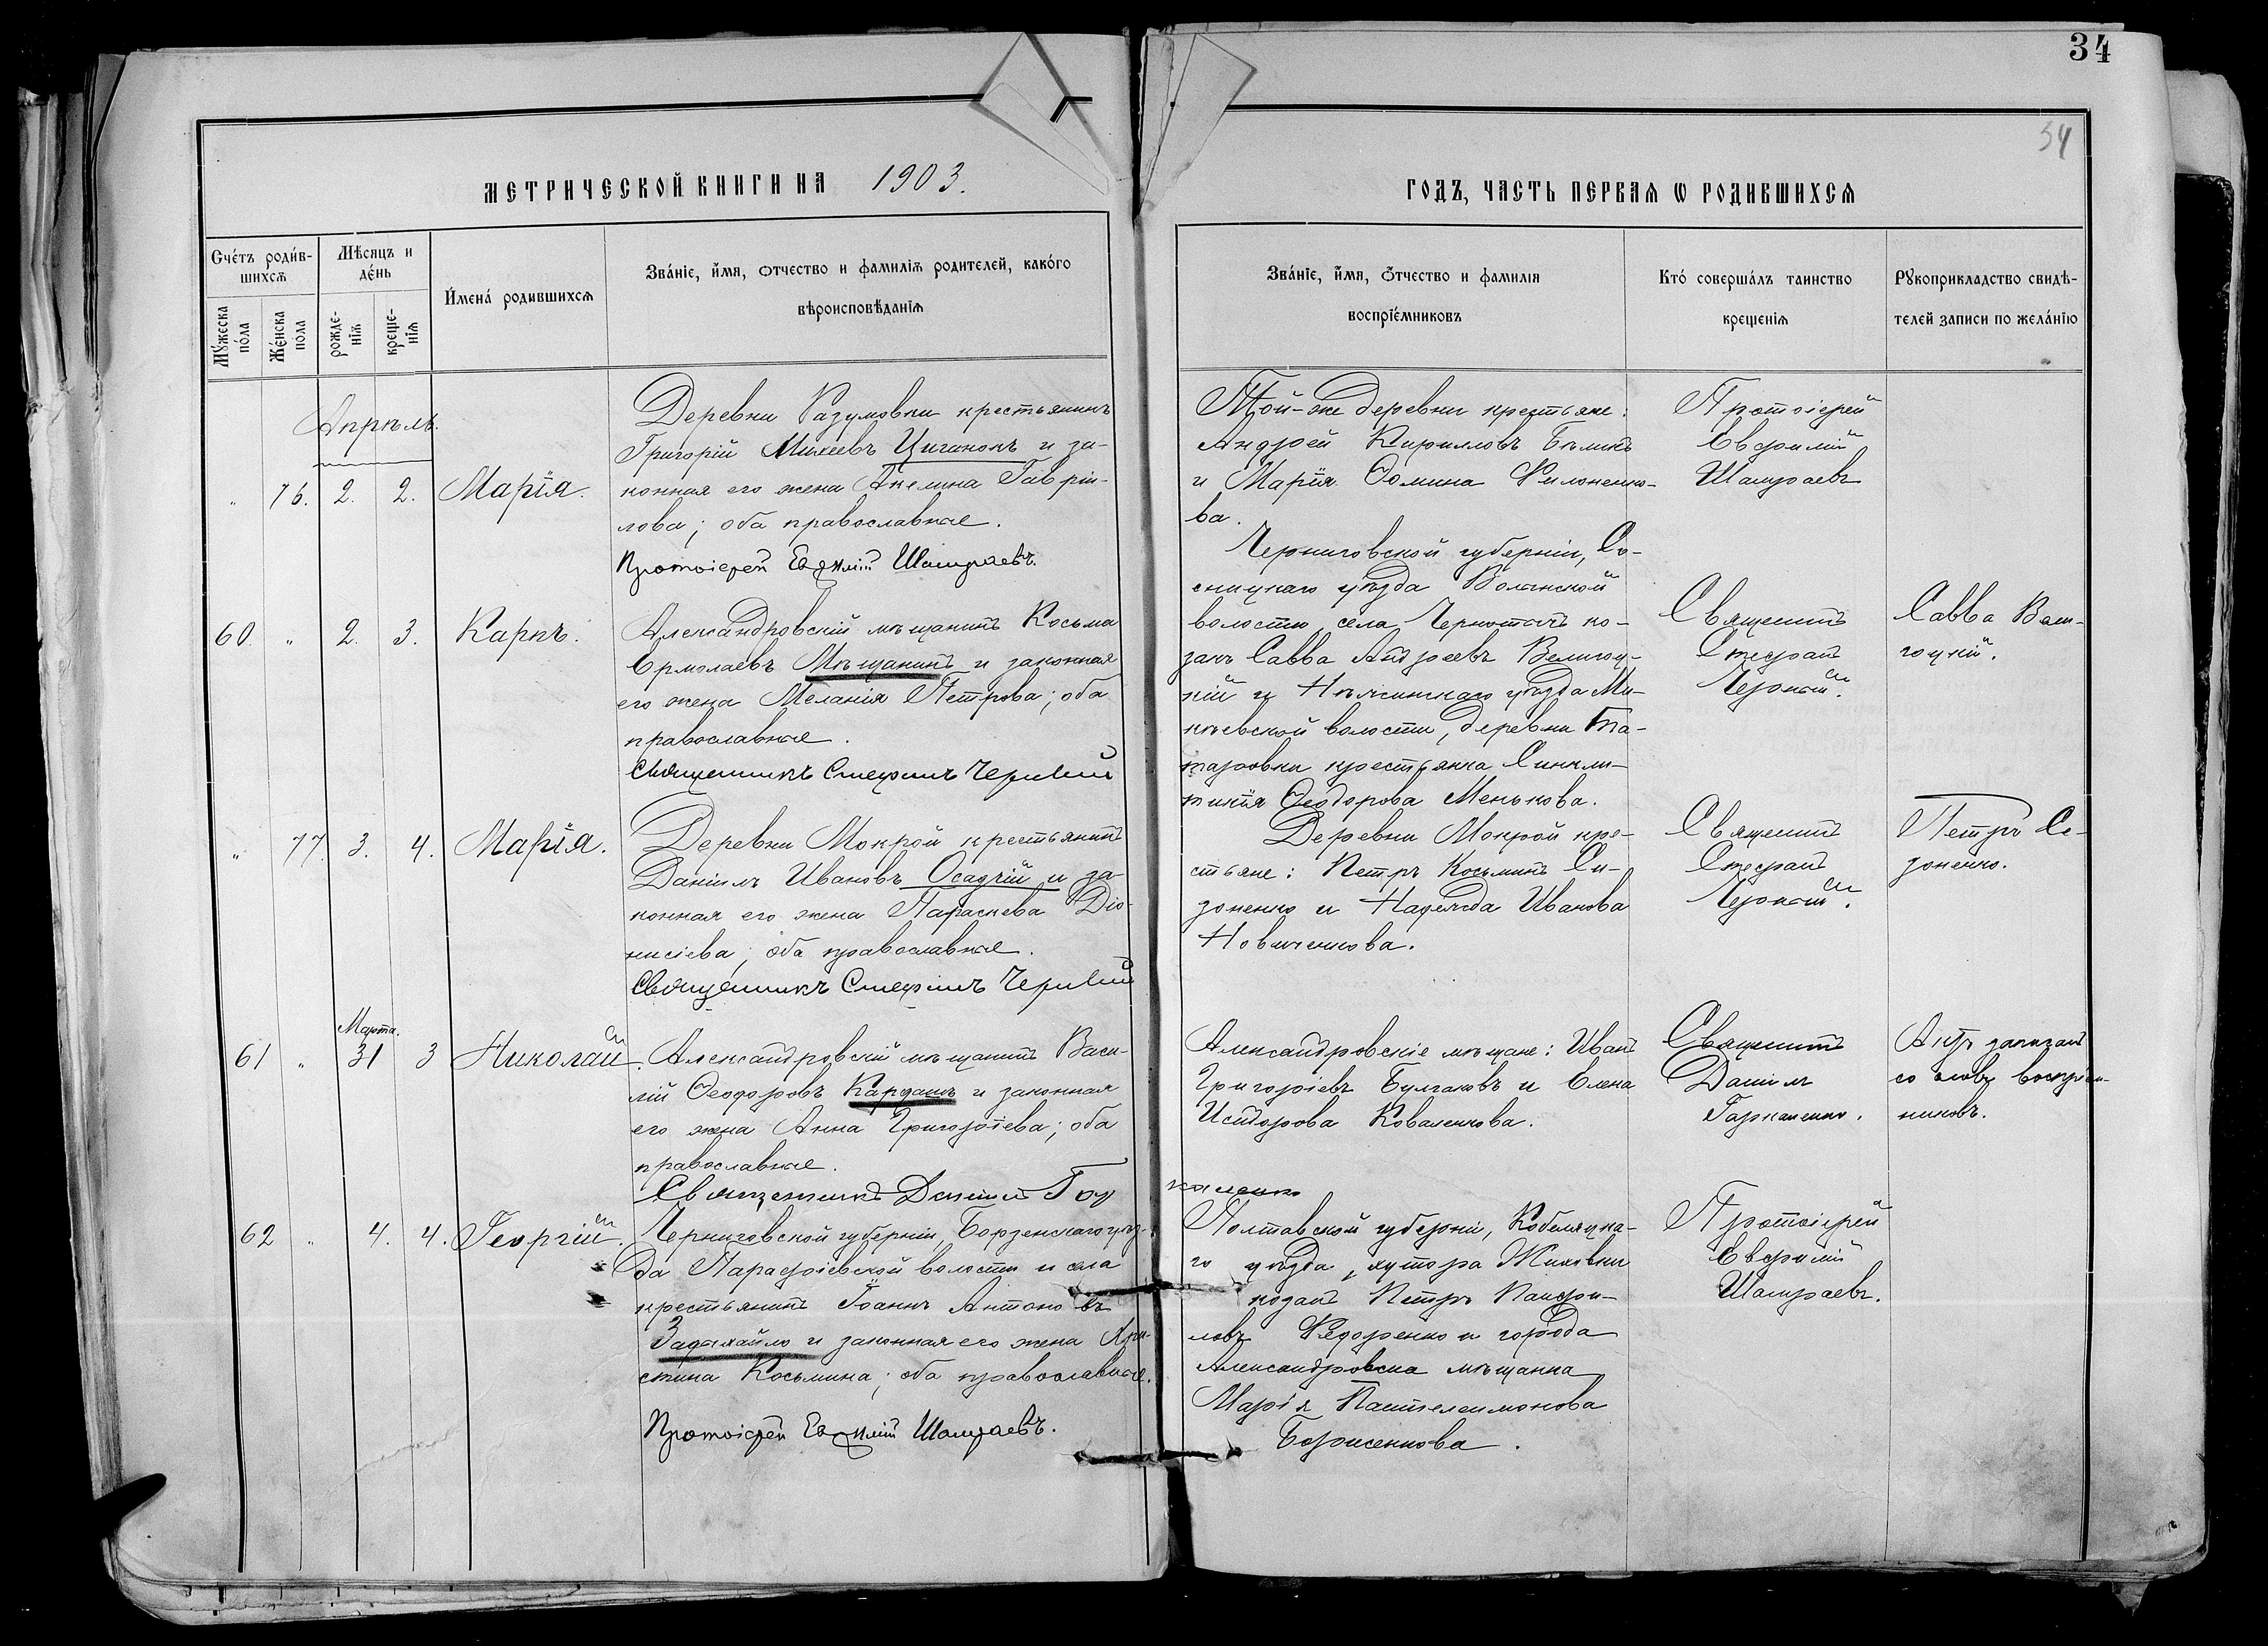 34
34
МЕТРИЧЕСКОЙ КНИГИ НА 1903.
ГОДЪ, ЧАСТЬ ПЕРВАЯ Ѡ РОДИВШИХСЯ
Счётъ роди́в-
шихся
Мѣ́сяцъ и
де́нь
Му́жеска
по́ла
Же́нска
по́ла
рожде-
нія
креще-
нія
И́мена́ родившихся
Зва́ніе, и́мя, ѻтчество и фамилія родителей, како́го
вѣроисповѣ́данія
Зва́ніе, и́мя, ѻ́тчество и фамилія
воспріе́мниковъ
Кто́ соверша́лъ таинство
крещенія
Рукоприкладство свидѣ-
телей записи по жела́нію
Апрѣль.
" 76. 2. 2. Марія.
Деревни Разумовки крестьянинъ
Григорій Михеевъ Циганокъ и за-
конная его жена Акелина Гаврiи-
лова; оба православные.
Протоіерей Евфимій Шамраевъ.
Той-же деревни крестьяне:
Андрей Кирилловъ Бѣликъ
и Марія Фомина Филоненко-
ва.
Протоіерей
Евфимій
Шамраевъ
60. " 2. 3. Карпъ.
Александровскій мѣщанинъ Косьма
Ермолаевъ Мѣщанинъ и законная
его жена Меланія Петрова; оба
православные.
Священникъ Стефанъ Чернай
Черниговской губерніи, Со-
сницкаго уѣзда Волынской
волости, села Чернотичъ ко-
закъ Савва Андреевъ Велигоц-
кій и Нѣжинскаго уѣзда Мы-
нѣевской волости, деревни Та-
таровки крестьянка Синкли-
тикія Ѳеодорова Менькова.
Священникъ
Стефанъ
Чернай.
Савва Вели-
гоцкій.
" 77. 3. 4. Марія.
Деревни Мокрой крестьянинъ
Даніилъ Ивановъ Осадчій и за-
конная его жена Параскева Діо-
нисіева; оба православные.
Священникъ Стефанъ Чернай
Деревни Мокрой кре-
стьяне: Петръ Косьминъ Си-
доненко и Надежда Иванова
Новиченкова.
Священникъ
Стефанъ
Чернай.
Петръ Си-
доненко.
Марта.
61 " 31 3 Николай.
Александровскій мѣщанинъ Васи-
лій Ѳеодоровъ Кардашъ и законная
его жена Анна Григоріева; оба
православные.
Священникъ Даніилъ Гар
каленко
Александровскіе мѣщане: Иванъ
Григоріевъ Булгаковъ и Елена
Исидорова Коваленкова.
Священникъ
Даніилъ
Гаркаленко.
Актъ записанъ
со словъ воспріем-
никовъ.
62 " 4. 4. Георгій.
Черниговской губерніи, Борзенскаго уѣз-
да Парафіевской волости и села
крестьянинъ Іоаннъ Антоновъ
Задыхайло и законная его жена Хри-
стина Косьмина; оба православные.
Протоіерей Евфимій Шамраевъ.
Полтавской губерніи, Кобеляцка-
го уѣзда, хутора Жиховки
козакъ Петръ Панфи-
ловъ Федоренко и города
Александровска мѣщанка
Марія Пантелеимонова
Борисенкова.
Протоіерей
Евфимій
Шамраевъ.